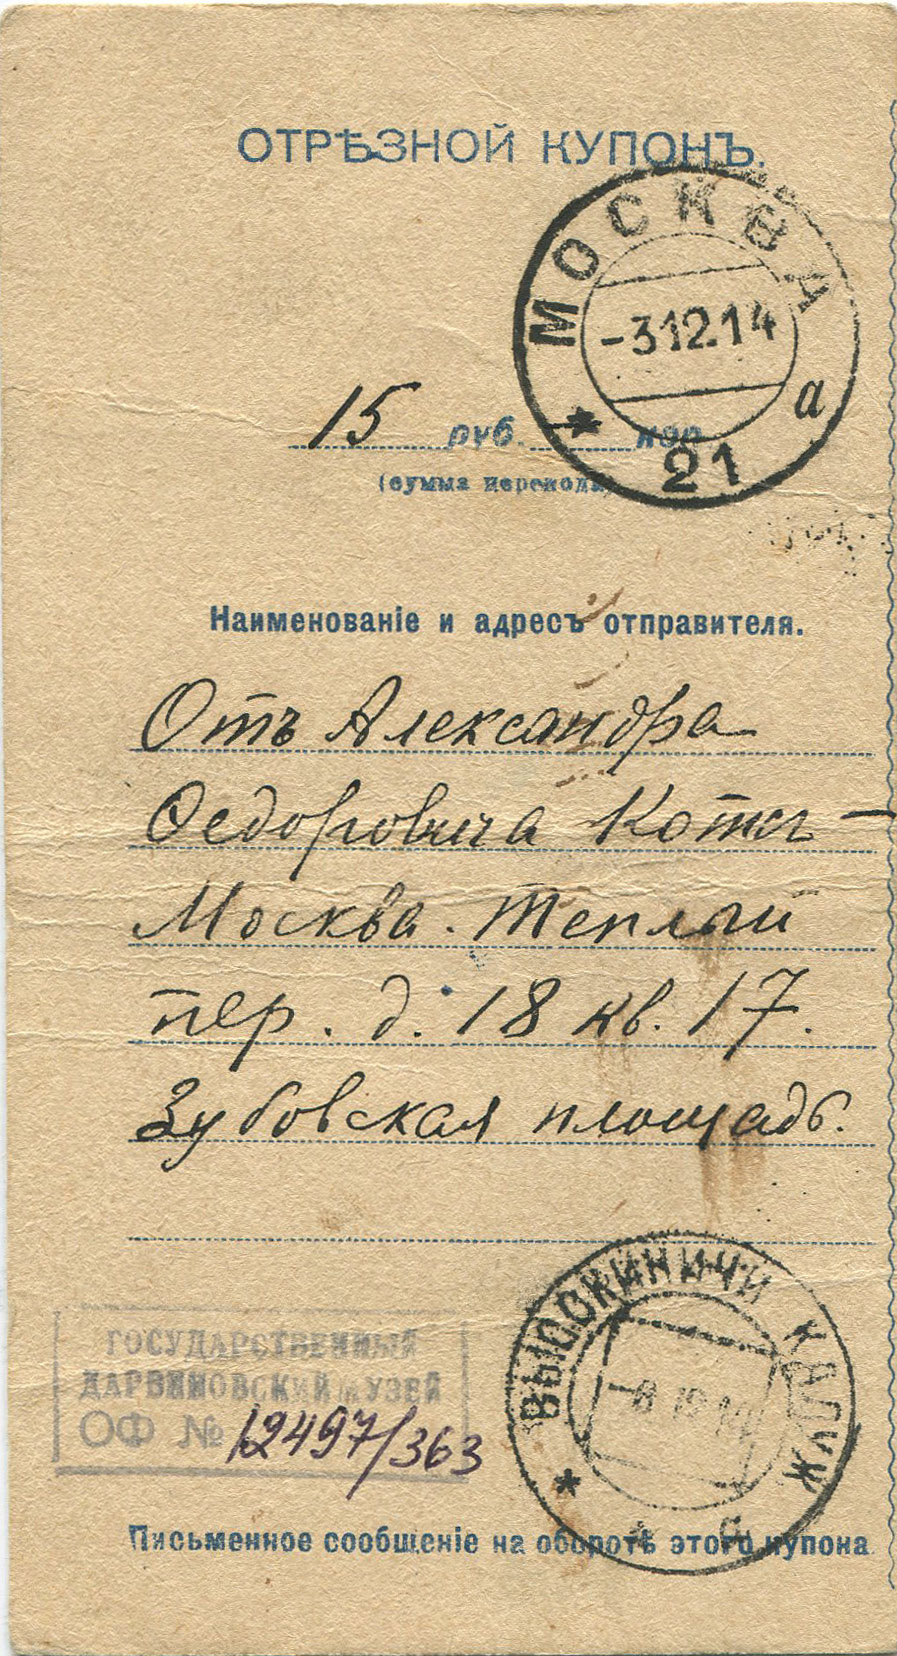 ОТРѢЗНОЙ КУПОНЪ.
МОСКВА
-3.12.14
а
* 21
15 руб. — коп.
(сумма перевода)
Наименованіе и адресъ отправителя.
Отъ Александра
Ѳедоровича Котсъ —
Москва. Теплый
пер. д. 18 кв. 17.
Зубовская площадь.
ВЫСОКИНИЧИ КАЛУЖ
*
ГОСУДАРСТВЕННЫЙ
ДАРВИНОВСКИЙ МУЗЕЙ
ОФ № 12497/363
Письменное сообщеніе на оборотѣ этого купона